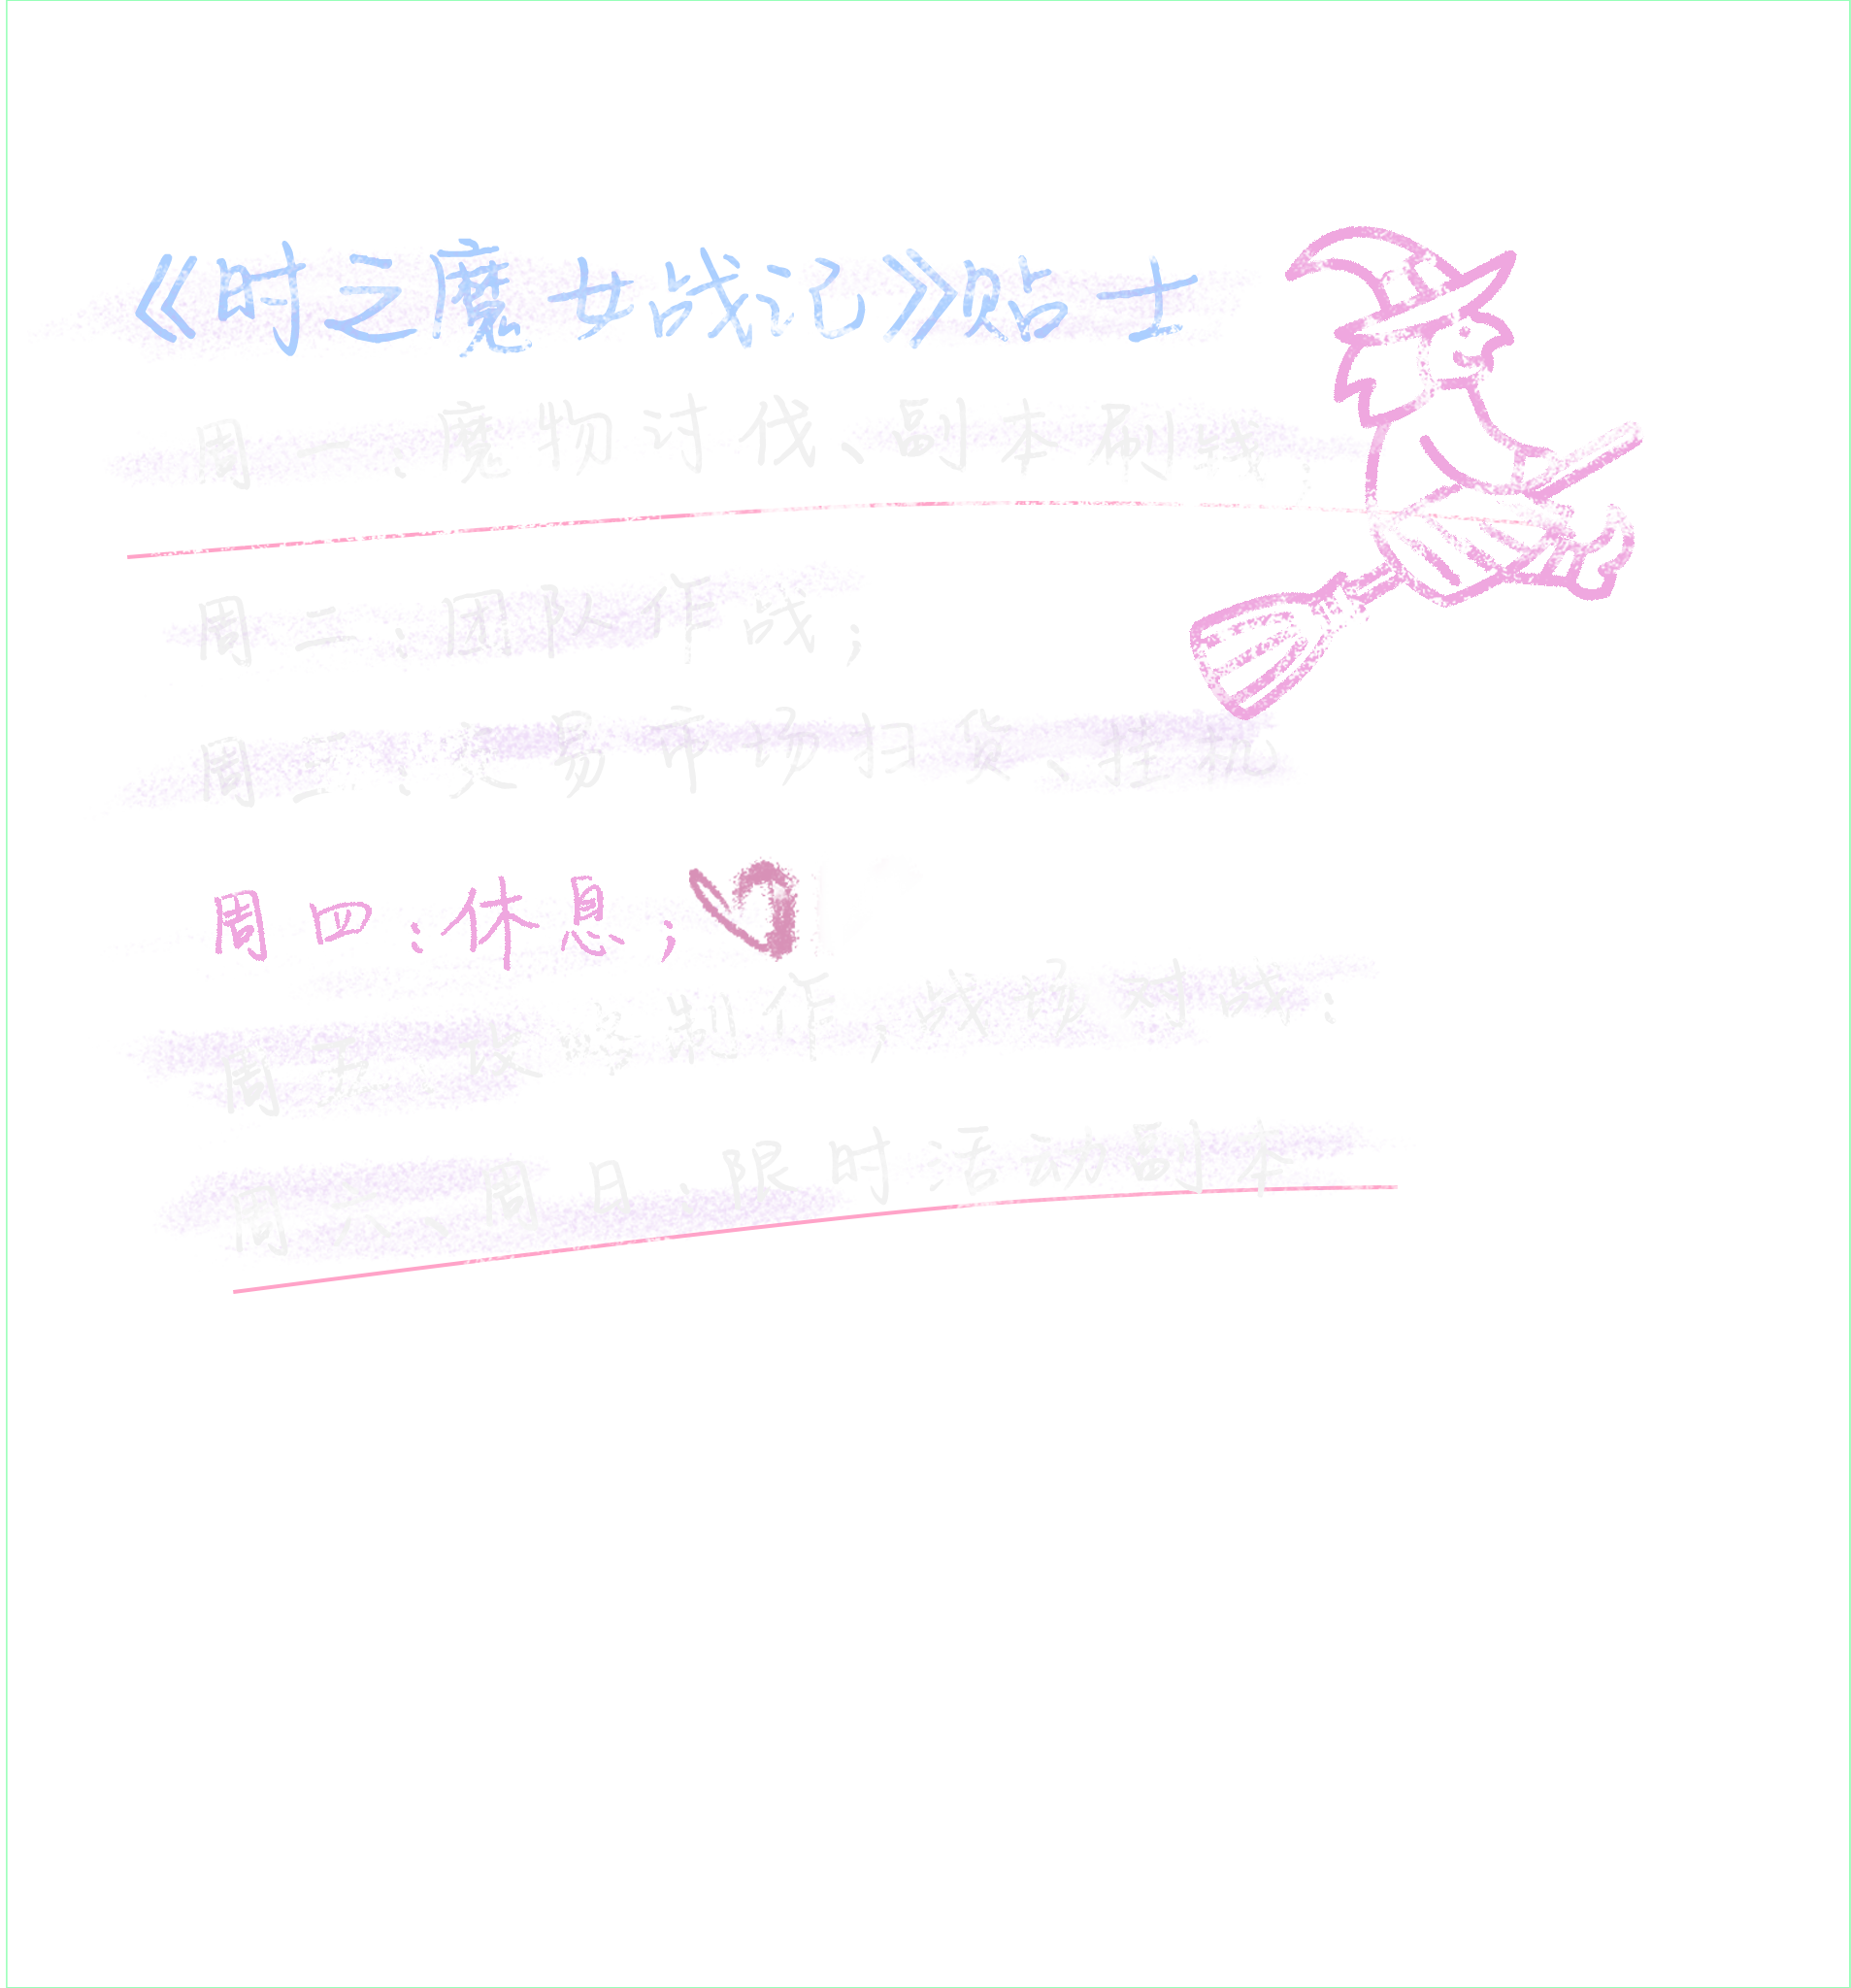 《时之魔女战记》贴士
周一:魔物讨伐、副本刷钱;
周二:团队作战;
周三:交易市场扫货、挂机
周四:休息;
周五:攻略制作,战役对战;
周六、周日:限时活动副本